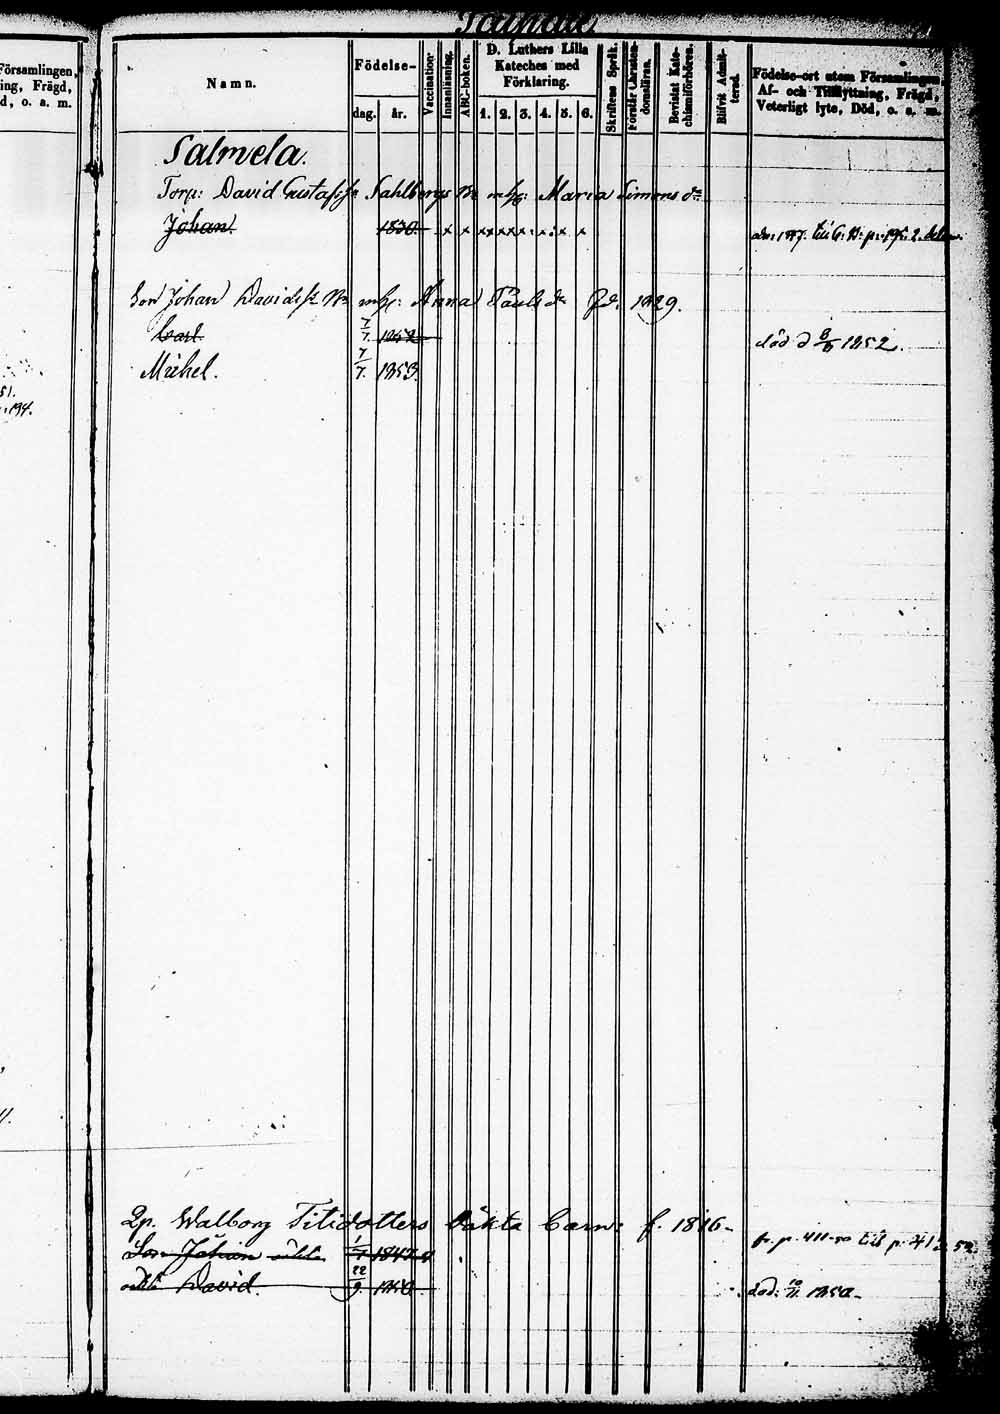 Församlingen,
ing, Frägd,
d, o. a. m.
51.
194.
Namn.
Födelse-
dag. år.
Vaccination
Innanläsning.
ABC-boken.
D. Luthers Lilla
Kateches med
Förklaring.
1. 2. 3. 4. 5. 6.
Skriftens Språk.
Förstår Christen-
domsläran.
Bevistat Kate-
chismiförhören.
Blifvit Admit-
terad.
Födelse-ort utom Församlingen,
Af- och Tillflyttning, Frägd,
Veterligt lyte, Död, o. a. m.
Salmela.
Torp: David Gustafss: Sahlbergs Maria Simons dr
Johan. 1830. x x x x x x x x x till p. 195. 2.
Son Johan Davidss: Anna Påuls dr fd. 1829.
Carl. 7/7. 1852 död d 8/8 1852.
Michel. 7/7. 1853.
Qp. Walborg Titidotters oäkta Barn: f. 1816-
Son Johan oäkta 1/1 1847 fr. p. 411-50 till p. 41
oäkta David. 22/9. 1850 död: 1850-